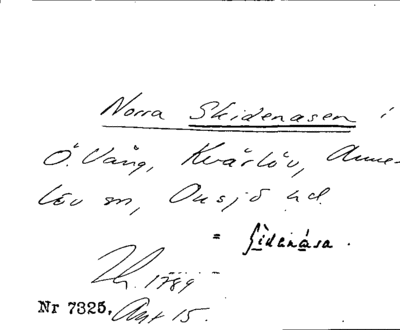 Norra Skidenasen i
Ö. Vång, Kvärlöv, Anne-
löv sn, Onsjö hd.
= Sidenåsa.
1789
Nr 7325. Akt 15.